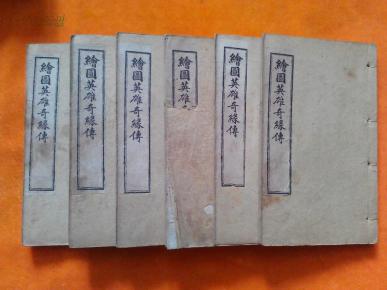 繪圖英雄奇緣傳
繪圖英雄奇緣傳
繪圖英雄奇緣傳
繪圖英雄
繪圖英雄奇緣傳
繪圖英雄奇緣傳